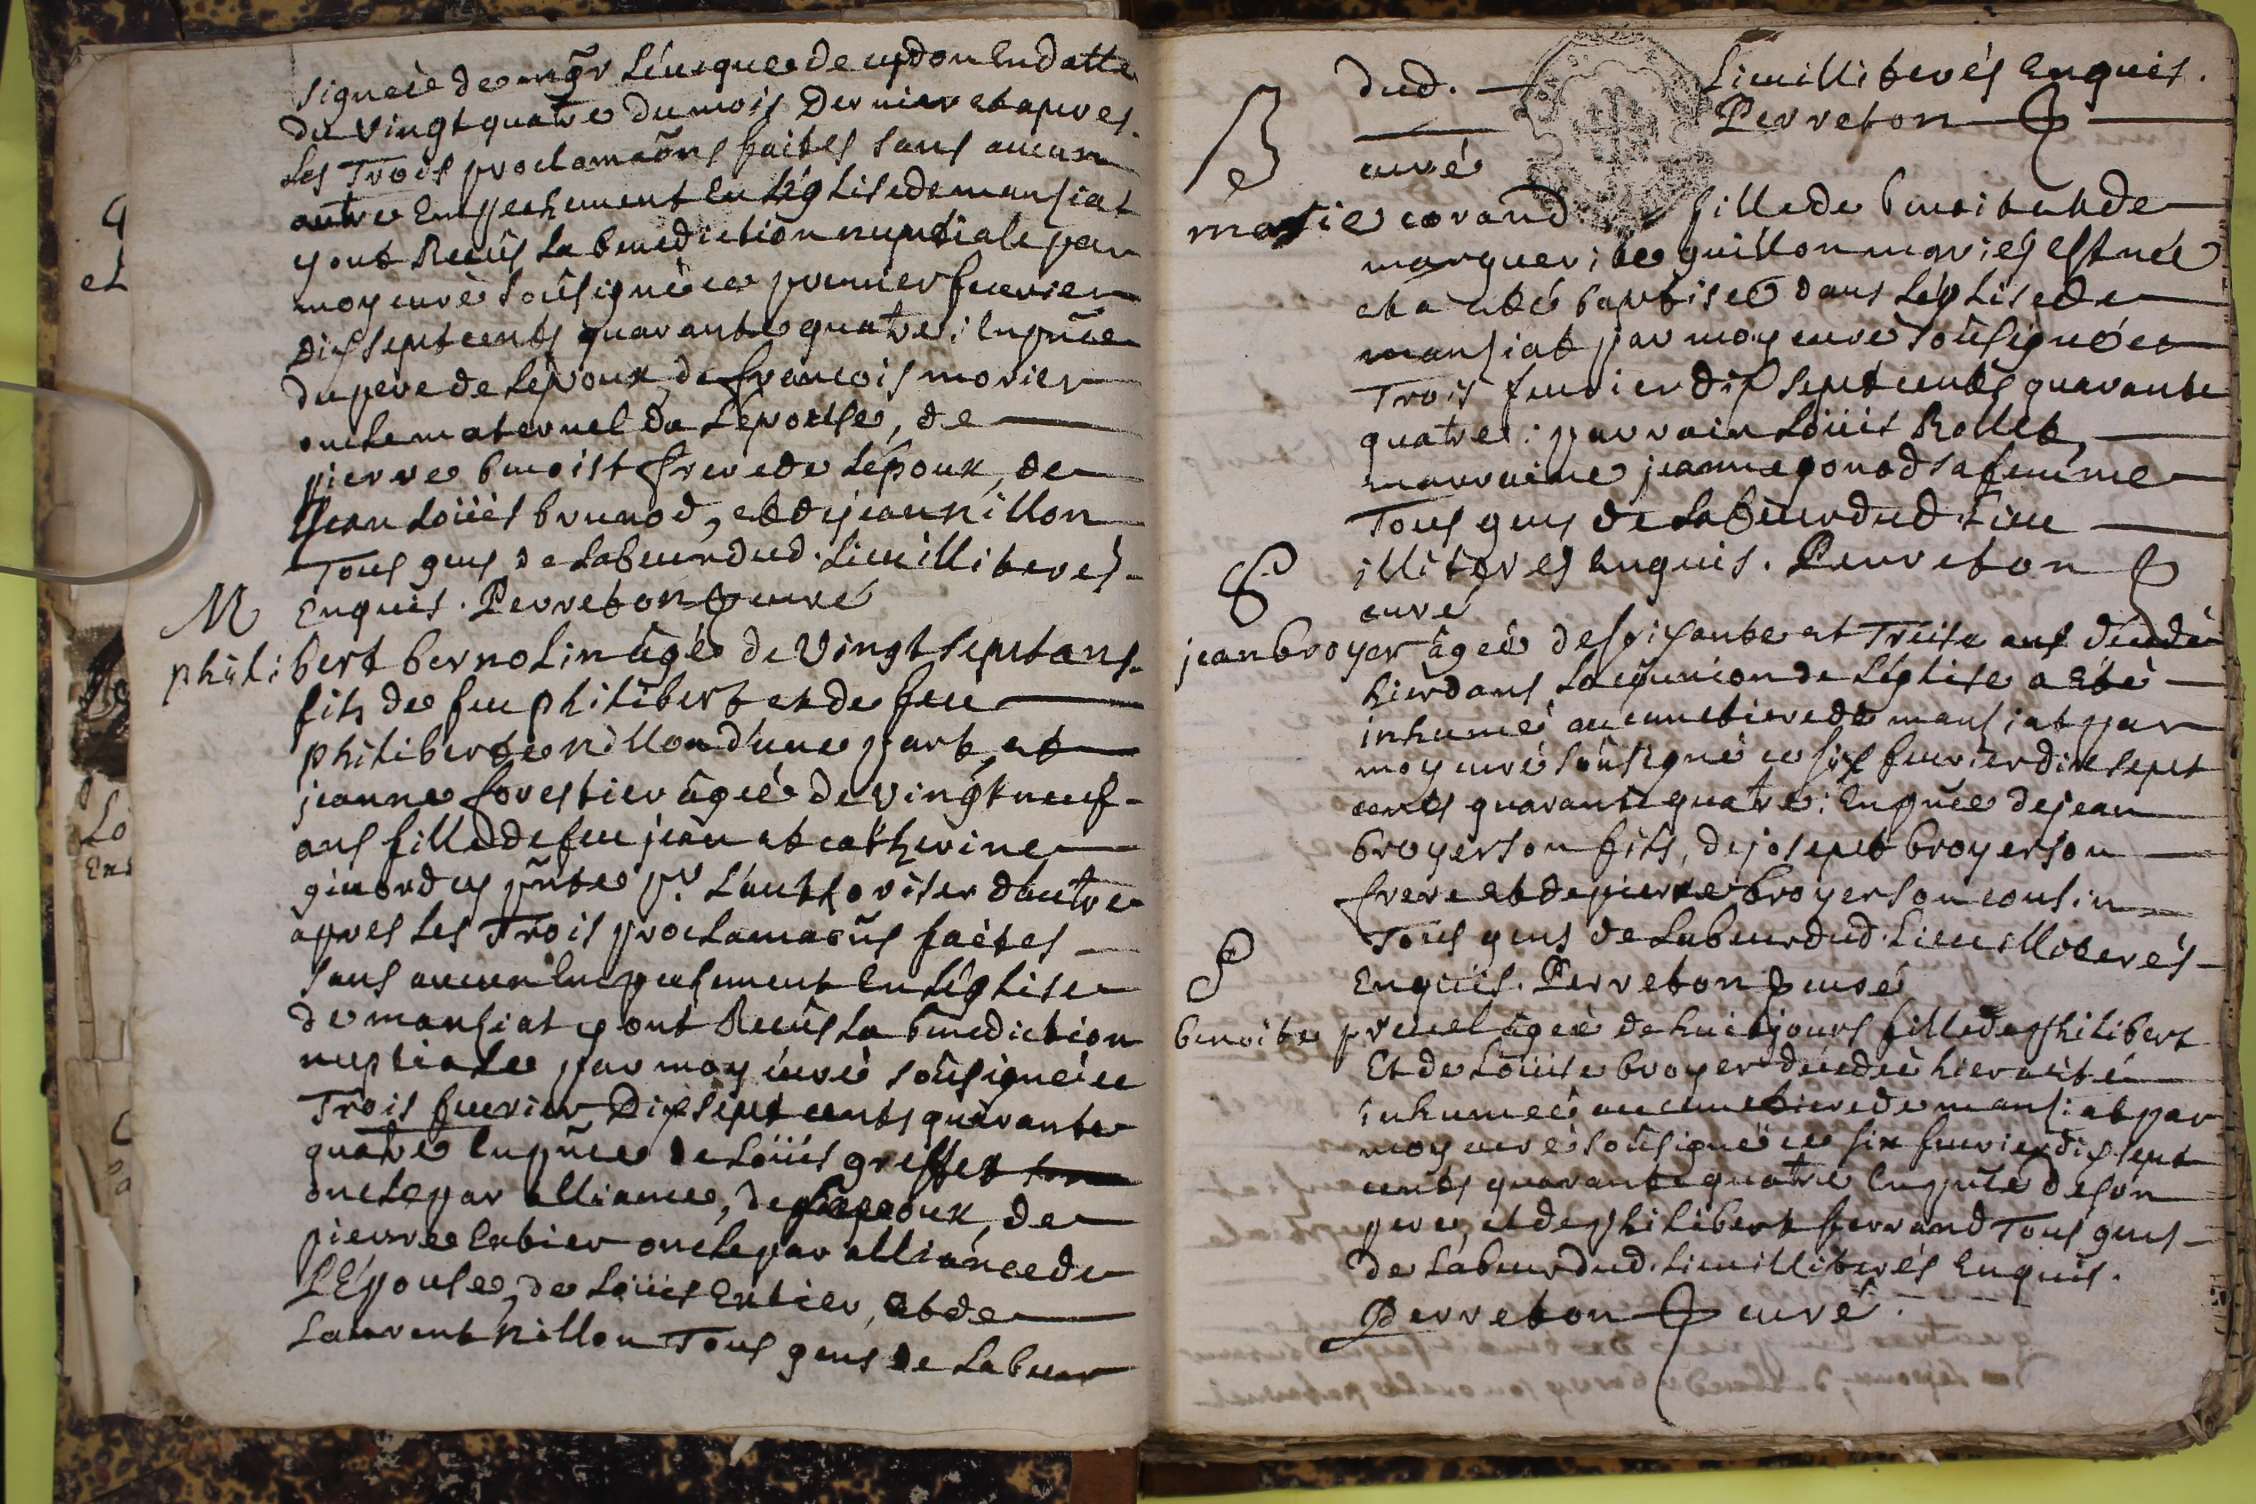 signeèe de mg̃r L'éuesque de lyon En datte
du vingt quatre du mois dernier et apres
Les Trois proclamaõns faites sans aucun
autre Empechement En L'église de manziat
y ont Recûs La benediction nuptiale par
moy curé soûsigné ce premier feurier
dix sept cents quarante quatre; En pñce
du pere de L'époux, de françois morier
oncle maternel de L'épouse, de
pierre benoist frere de L'époux, de
Jean Loüis brunod, et de jean nillon
Tous gens de Labeur dud. Lieu illiterés
M
Enquis. Perreton curé
philibert bernolin âgé de vingt sept ans
fils de feu philibert et de feu
philiberte nillon d'une part, et
jeanne forestier âgeé de vingt neuf
ans fille de feu jean et catherine
cy pñte pr. L'authoriser d'autre
apres Les Trois proclamaoñs faites
sans aucun Empechement En L'église
de manziat y ont Recûs La benediction
nuptiale par moy curé soûsigné ce
Trois feurier Dix sept cents quarante
quatre En pñce de Loüis greffet
oncle par alliance, de L'époux, de
pierre Entier oncle par alliance de
L'Epouse, de Loüis Entier, et de
Laurent nillon Tous gens de Labeur
dud. Lieu illiterés Enquis.
B
Perreton
curé
marie corand fille de benoit et de
marguerite guillon mariés est neé
et a eté baptiseé dans L'église de
manziat par moy curé soûsigné ce
Trois feurier dix sept cents quarante
quatre: parrain Loüis Rollet,
marraine jeanne gonod sa femme
Tous gens de Labeur dud. Lieu
S
illiterés Enquis. Perreton
curé
jean broyer âgé de soixante et Treise ans décédé
hier dans La cõmunion de L'église a Eté
inhumé au cimetiere de manziat par
moy curé soûsigné ce six feurier dix sept
cents quarante quatre; En pñce de jean
broyer son fils, de josept broyer son
frere et de pierre broyer son cousin
Tous gens de Labeur dud. Lieu illiterés
S
Enquis. Perreton curé
benoite preuel âgeé de huit jours fille de philibert
Et de Loüise broyer décédeé hier a eté
inhumeé au cimetiere de manziat par
moy curé soûsigné ce six feurier dix sept
cents quarante quatre En pñce de son
pere, et de philibert ferrand Tous gens
de Labeur dud. Lieu illiterés Enquis.
Perreton curé